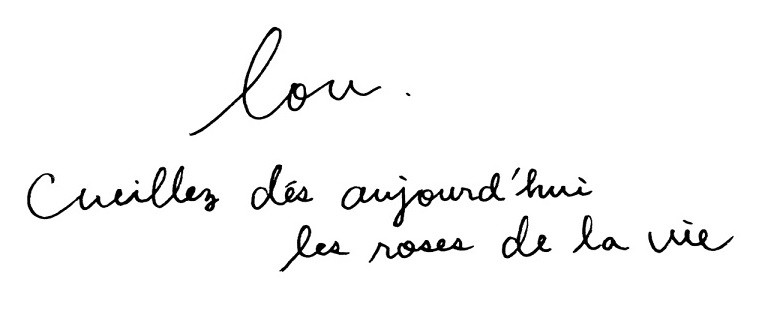 lou.
Cueillez dés aujourd'hui
les roses de la vie